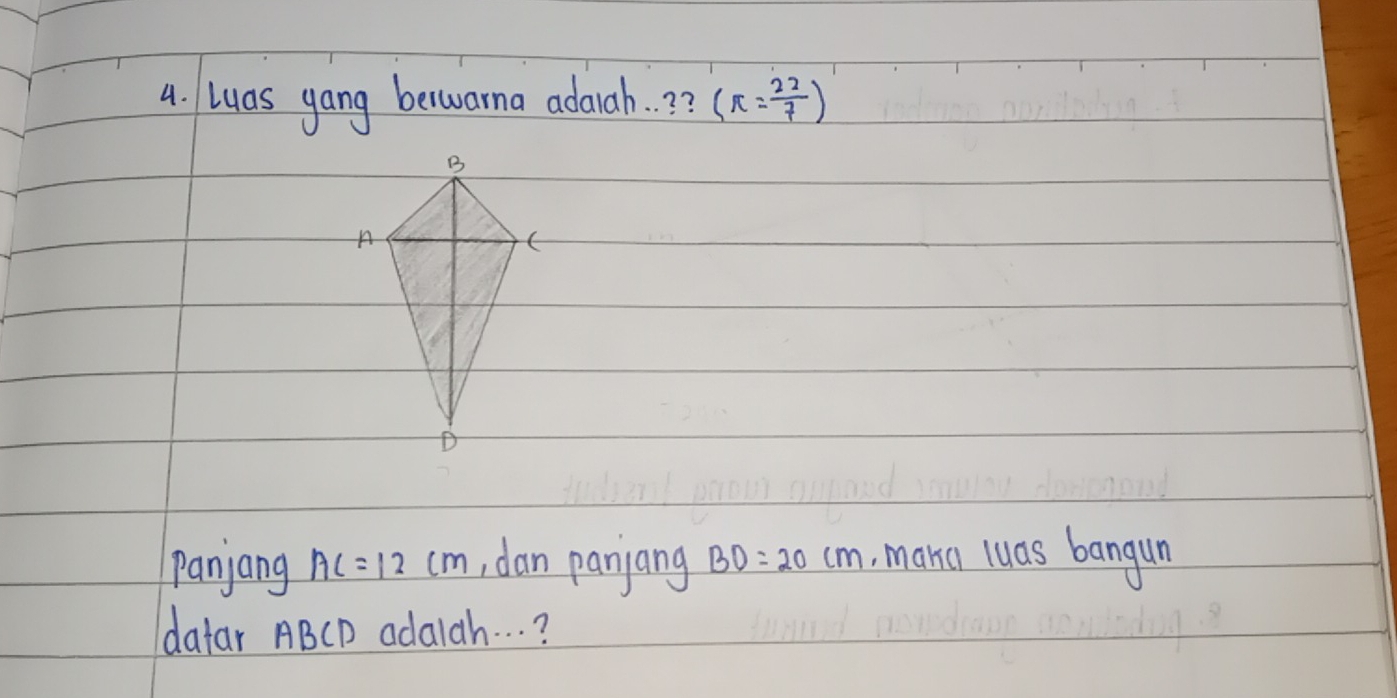 4. Luas yang berwarna adalah..?? (π = 22/7)
B
A
C
D
Panjang AC = 12 cm, dan panjang BD = 20 cm. maka luas bangun
datar ABCD adalah...?